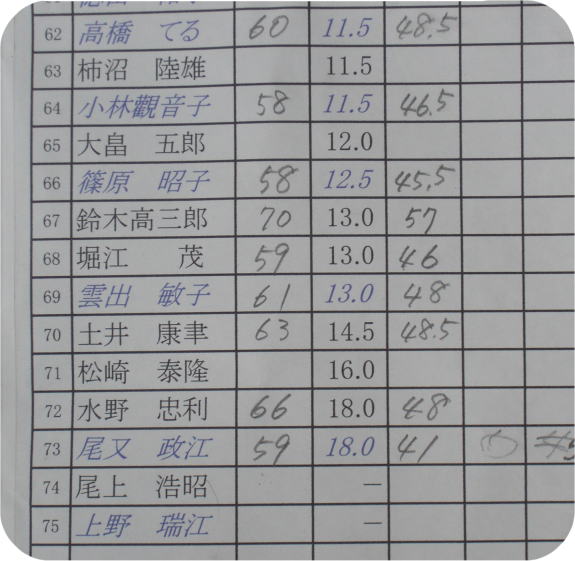 62 高橋 てる 60 11.5 48.5
63 柿沼 陸雄 11.5
64 小林觀音子 58 11.5 46.5
65 大畠 五郎 12.0
66 篠原 昭子 58 12.5 45.5
67 鈴木高三郎 70 13.0 57
68 堀江 茂 59 13.0 46
69 雲出 敏子 61 13.0 48
70 土井 康聿 63 14.5 48.5
71 松崎 泰隆 16.0
72 水野 忠利 66 18.0 48
73 尾又 政江 59 18.0 41
74 尾上 浩昭 －
75 上野 瑞江 －